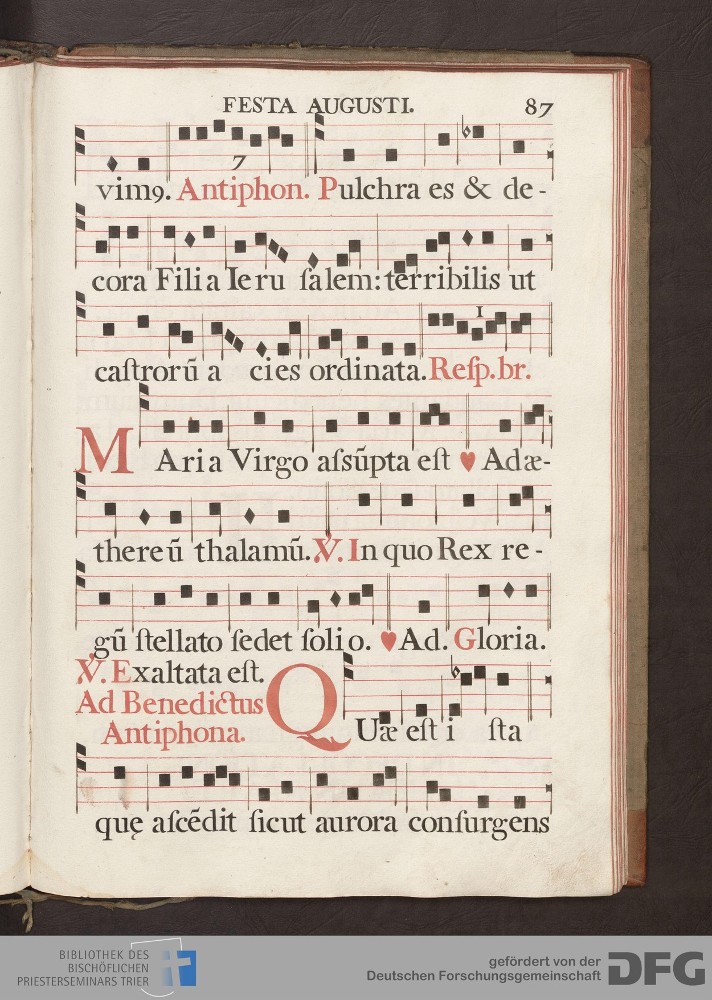 FESTA AUGUSTI. 87
7
vim9. Antiphon. Pulchra es & de-
cora Filia Ieru ſalem: terribilis ut
1
caſtrorū a cies ordinata. Reſp. br.
MAria Virgo aſsūpta eſt ♥ Ad æ-
thereū thalamū. ℣. In quo Rex re-
gū ſtellato ſedet ſolio. ♥ Ad. Gloria.
℣. Exaltata eſt.
Ad Benedictus
Antiphona.
QUæ eſt i ſta
quę aſcēdit ſicut aurora conſurgens
BIBLIOTHEK DES
BISCHÖFLICHEN
PRIESTERSEMINARS TRIER
gefördert von der
Deutschen Forschungsgemeinschaft
DFG